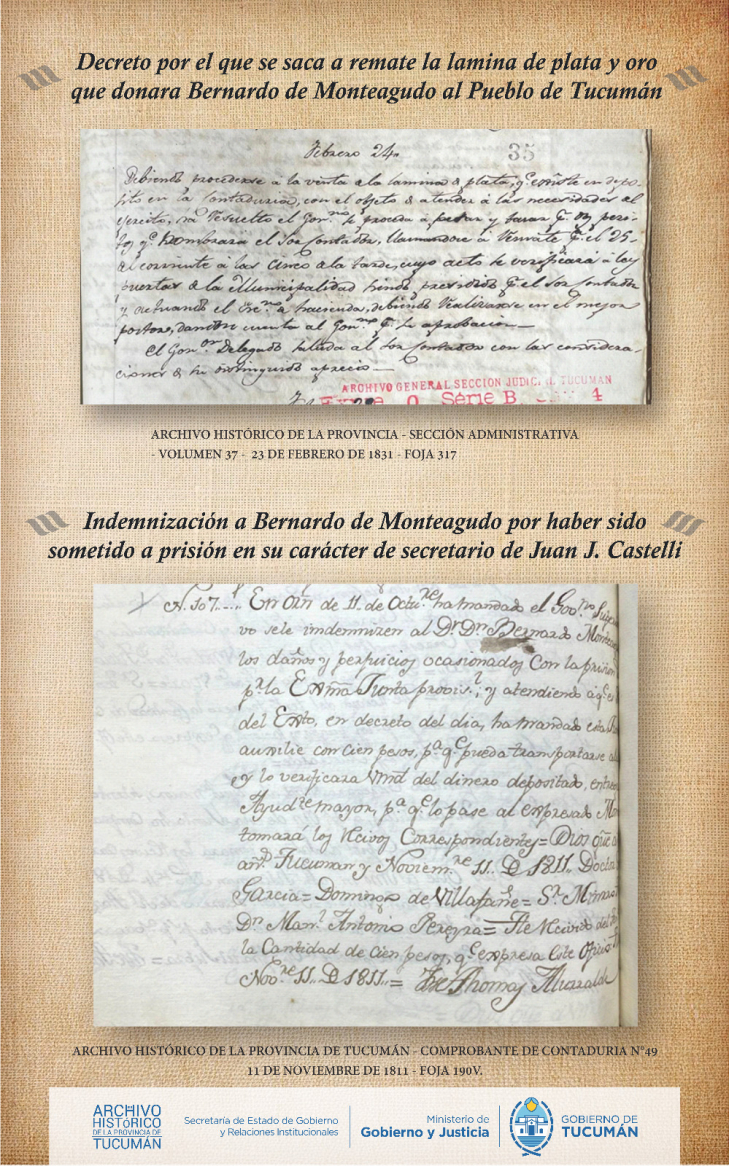 Decreto por el que se saca a remate la lamina de plata y oro
que donara Bernardo de Monteagudo al Pueblo de Tucumán
Febrero 24.
35
Debiendo procederse à la venta de la lamina de plata, q.e existe en depo-
sito en la Contaduria, con el objeto de atender à las necesidades del
ejercito, ha resuelto el Gov.no se proceda à pesar y tasar p.r dos peri-
tos q.e nombrará el Sor Contador, llamandose à remate p.a el 25
del corriente à las cinco de la tarde, cuyo acto se verificará à las
puertas de la Municipalidad siendo presidido p.r el Sor Contador
y actuando el de hacienda, debiendo realizarse en el mejor
postor, dandose cuenta al Gov.no p.a su aprobacion.
El Gov.or Delegado saluda al Sor Contador con las considera-
ciones de su distinguido aprecio.
ARCHIVO GENERAL SECCION JUDIC. TUCUMAN
Série B. 4
ARCHIVO HISTÓRICO DE LA PROVINCIA - SECCIÓN ADMINISTRATIVA
- VOLUMEN 37 - 23 DE FEBRERO DE 1831 - FOJA 317
Indemnización a Bernardo de Monteagudo por haber sido
sometido a prisión en su carácter de secretario de Juan J. Castelli
N. 107. En Ofi.o de 11. de Octu.re ha mandado el Gov.no
vo se le indemnizen al D.r D.n Bernardo
los daños y perjuicios ocasionados con la prision
p.r la Exma Junta provis.l, y atendiendo à q.e
del Exto, en decreto del dia, ha mandado esta
auxilie con cien pesos, p.a q.e pueda transportarse
y lo verificara Vmd del dinero depositado,
Ayud.te mayor, p.a q.e lo pase al expresado
tomará los recivos Correspondientes= Dios gũe
an.s Tucuman y Noviem.re 11. D 1811.
Garcia= Domingo de Villafañe= S.r
D.n Man.l Antonio Pereyra= He recivido del
la Cantidad de cien pesos, q.e expresa este Oficio
Nov.re 11. D 1811.= Jose Thomas
ARCHIVO HISTÓRICO DE LA PROVINCIA DE TUCUMÁN - COMPROBANTE DE CONTADURIA N°49
11 DE NOVIEMBRE DE 1811 - FOJA 190V.
ARCHIVO
HISTÓRICO
DE LA PROVINCIA DE
TUCUMÁN
Secretaría de Estado de Gobierno
y Relaciones Institucionales
Ministerio de
Gobierno y Justicia
GOBIERNO DE
TUCUMÁN